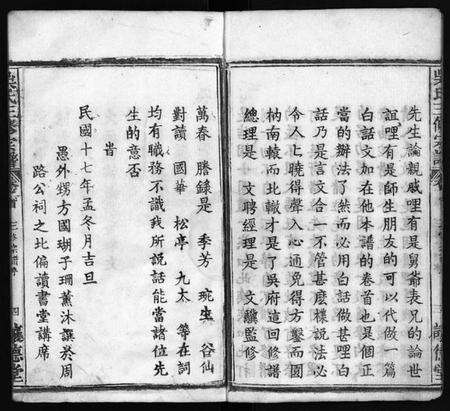 先生論親戚哩有是舅爺表兄的論世
誼哩有是師生朋友的可以代做一篇
白話文如在他本譜的卷首也是個正
當的辦法了然而必用白話做甚哩白
話乃是言文合一不管甚麼樣說法必
令人上曉得聲入心通免得方鑿而圓
枘南轅而北轍才是了吳府這回修譜
總理是 文聘經理是 文驥監修
萬春 謄錄是 季芳 琬 谷仙
對讀 國華 松亭 九太 等在詞
均有職務不識我所說話能當諸位先
生的意否
旹
民國十七年孟冬月吉旦
愚外甥方國瑚子珊薰沐譔於周
路公祠之北偏讀書堂講席
四
德堂